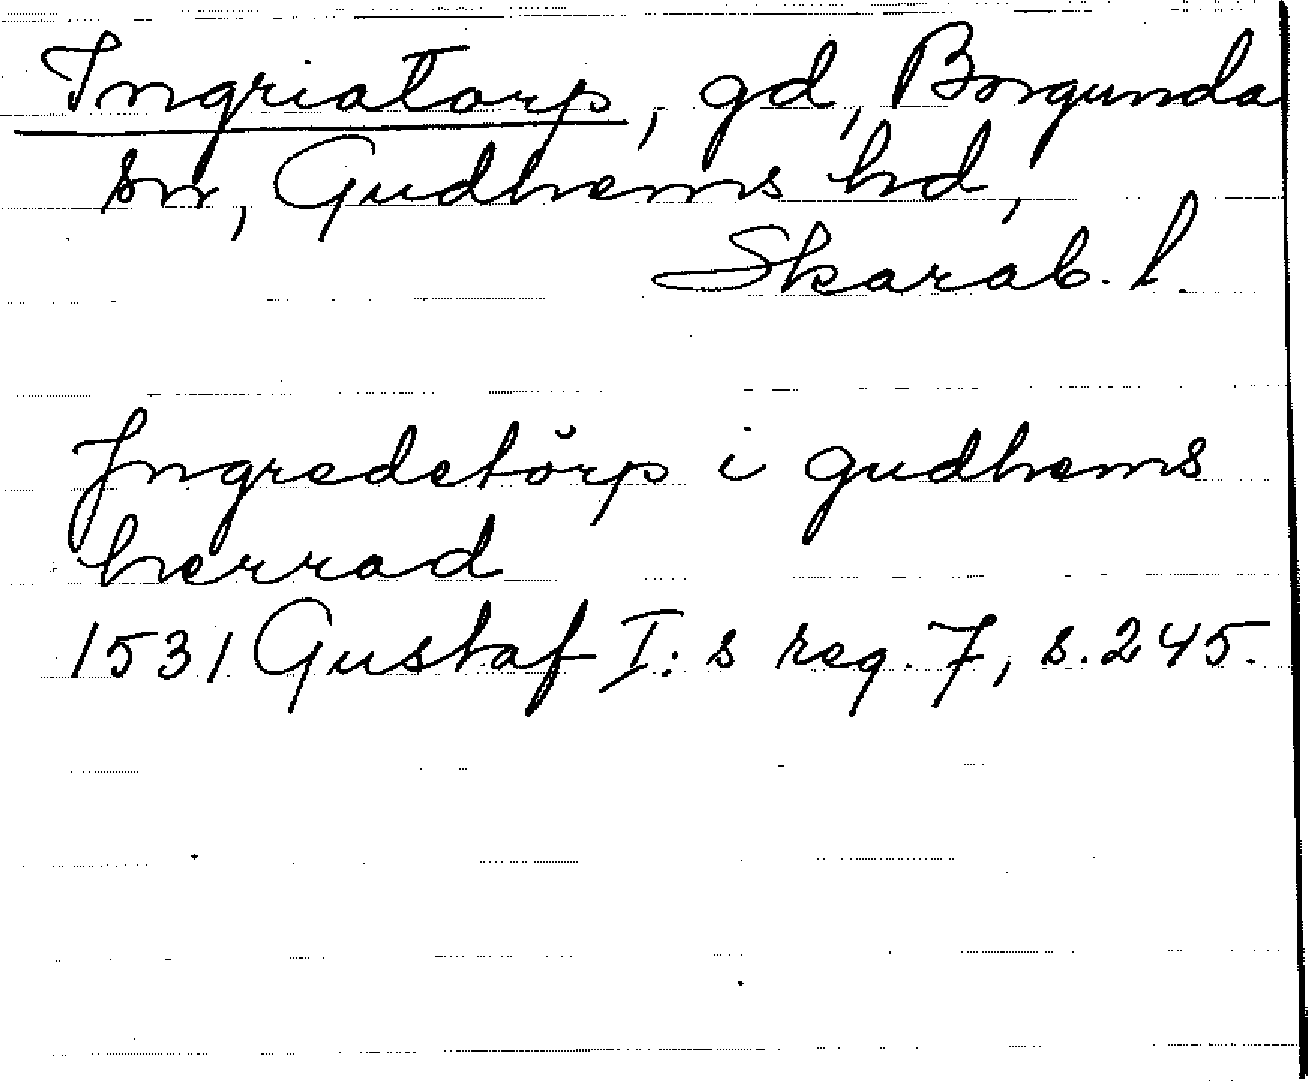 Ingriatorp, gd, Borgunda
sn, Gudhems hd,
Skarab. l.
Jngredetörp i gudhems
herrad
1531 Gustaf I:s reg. 7, s. 245.